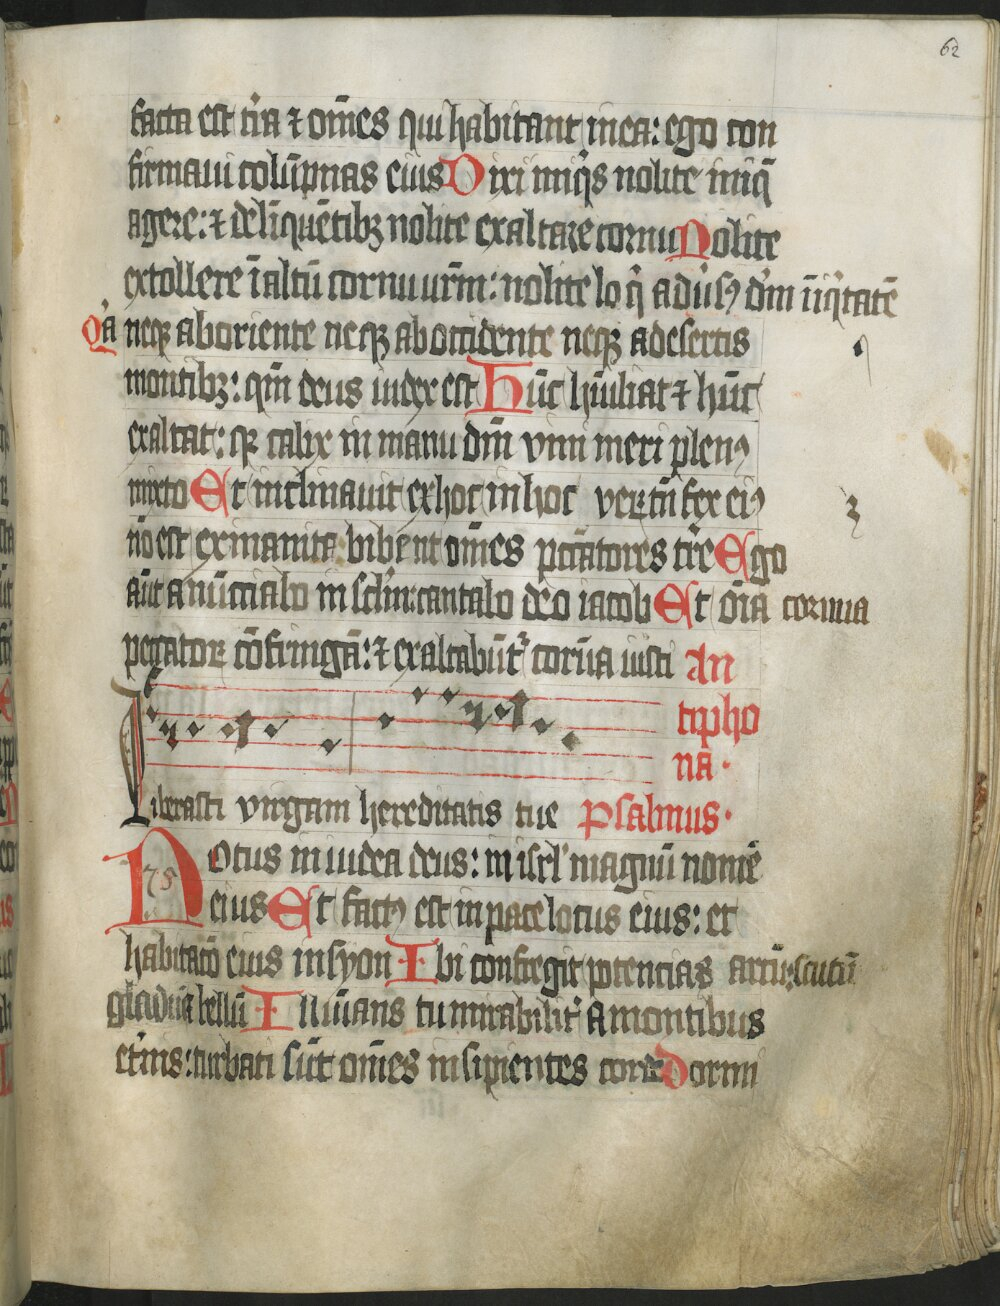 62
facta est t'ra ⁊ om̄es qui habitant in ea: ego con
firmaui colūpnas eius Dixi iniq's nolite iniq̄
agere: ⁊ delīquētibꝫ nolite exaltare cornu Nolite
extollere ī altū cornu ur̄m: nolite loq̄ adu'sꝰ d'm īiq'tatē
Q'a neqꝫ ab oriente neqꝫ ab occidente neqꝫ a desertis
montibꝫ: qm̄ deus iudex est Hūc hūiliat ⁊ hūc
exaltat: qꝫ calix in manu dm̄ vini meri plenꝰ
mixto Et inclinauit ex hoc in hoc vertū fex eiꝰ
nō est exinanita bibent om̄es pc̄catores t're Ego
aūt anūcciabo in sclm̄: cantabo deo iacob Et om̄ia cornua
peccator cōfringā: ⁊ exaltabūt' cornua iusti An
tipho
na·
Liberasti virgam hereditatis tue Psalmus·
75
Notus in iudea deus: in isrl' magnū nomē
eius Et factꝰ est in pace locus eius: et
habitatō eius in syon Ibi confregit potencias arcū: scutū
gladiū ⁊ bellū Illūians tu mirabilit' a montibus
et'nis: turbati sūt om̄es insipientes corde Dormi